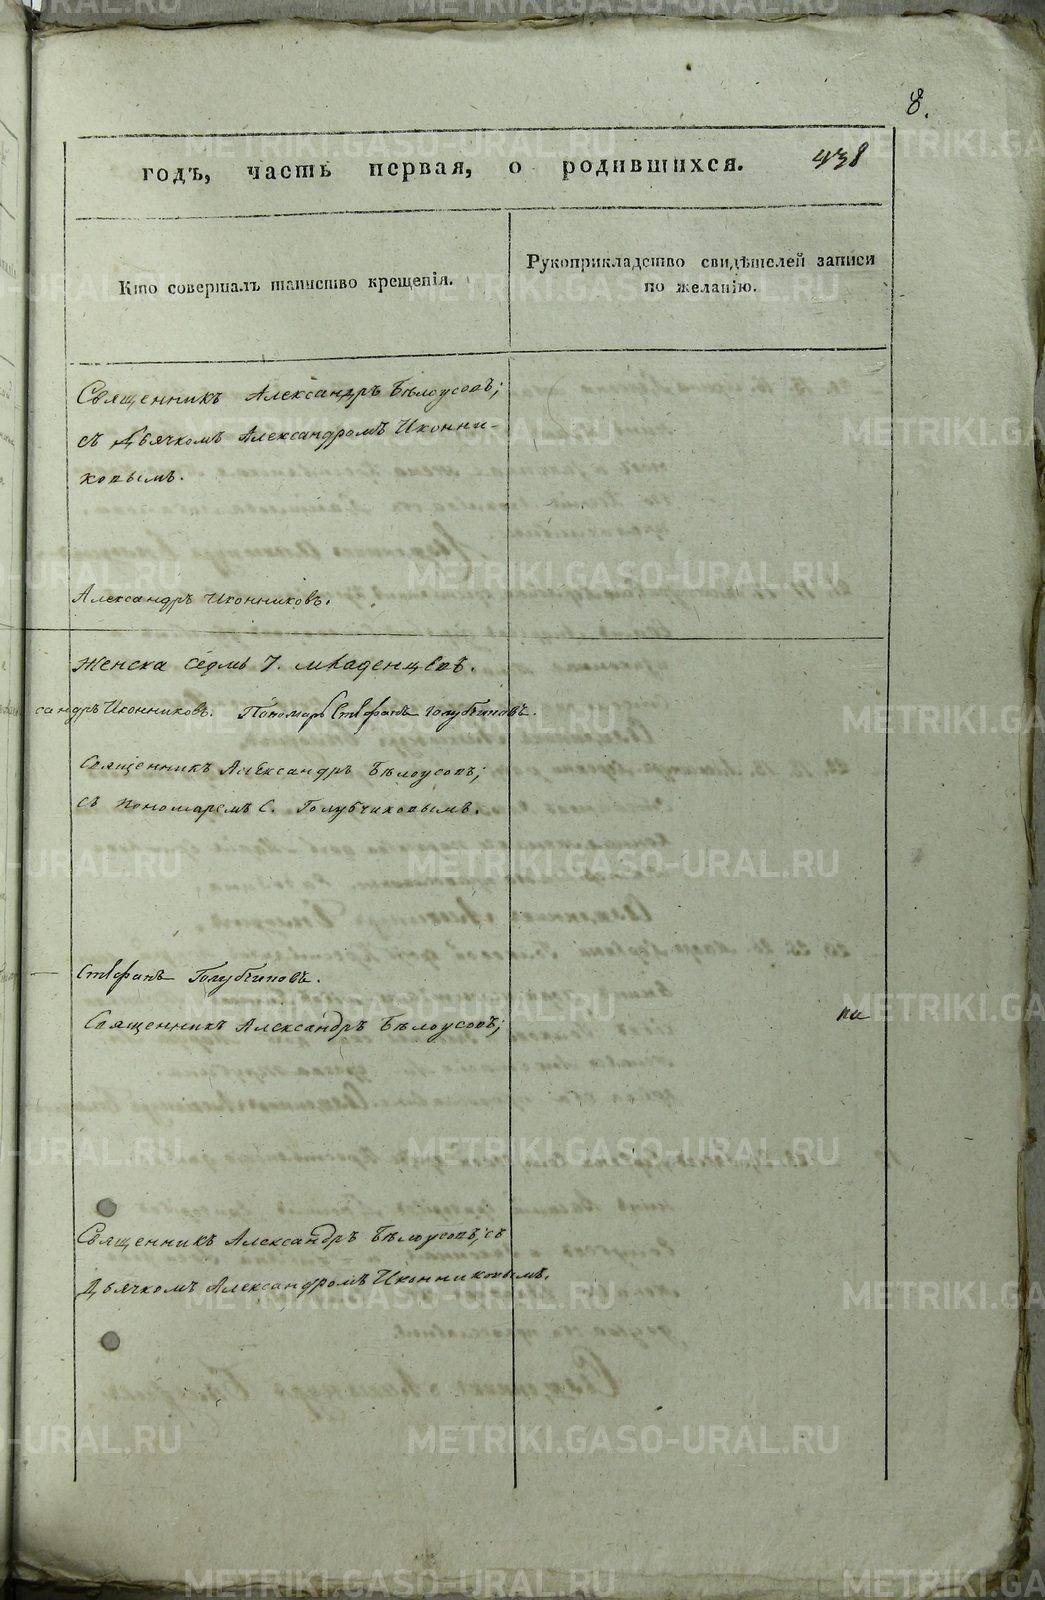 8.
438
годъ, часть первая, о родившихся.
Кто совершалъ таинство крещенія.
Рукоприкладство свидѣтелей записи
по желанію.
Священникъ Александръ Бѣлоусовъ;
съ Дьячкомъ Александромъ Иконни-
ковымъ.
Александръ Иконниковъ.
Женска седмь 7. младенцевъ.
сандръ Иконниковъ. Пономарь Стефанъ Голубчиковъ.
Священникъ Александръ Бѣлоусовъ;
съ пономаремъ С. Голубчиковымъ.
Стефанъ Голубчиковъ.
Священникъ Александръ Бѣлоусовъ;
Священникъ Александръ Бѣлоусовъ; съ
Дьячкомъ Александромъ Иконниковымъ.
METRIKI.GASO-URAL.RU